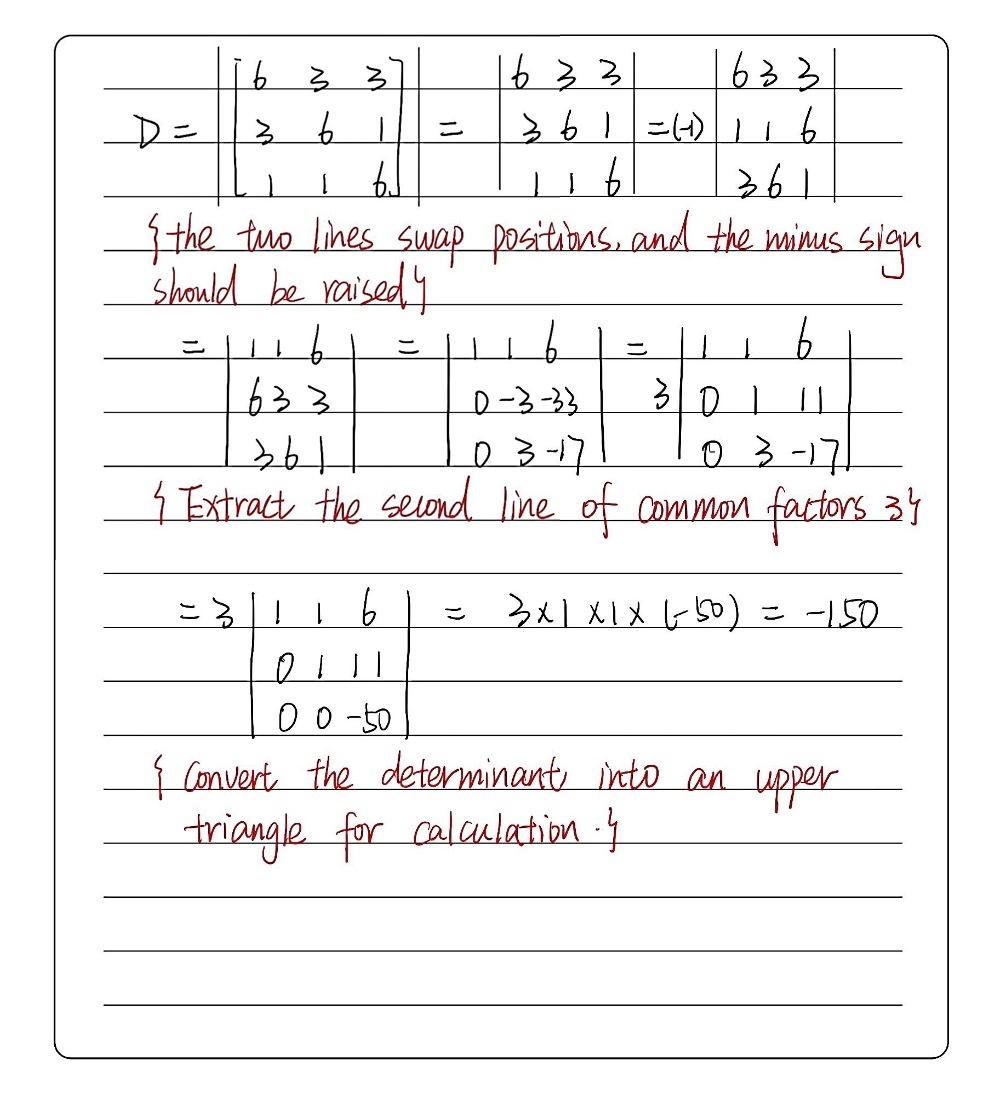 D = |[6 3 3] = |6 3 3| = (-1) |6 3 3|
[3 6 1] |3 6 1| |1 1 6|
[1 1 6]| |1 1 6| |3 6 1|
{the two lines swap positions, and the minus sign
should be raised}
= |1 1 6| = |1 1 6| = 3 |1 1 6|
|6 3 3| |0 -3 -33| |0 1 11|
|3 6 1| |0 3 -17| |0 3 -17|
{Extract the second line of common factors 3}
= 3 |1 1 6| = 3×1×1×(-50) = -150
|0 1 11|
|0 0 -50|
{Convert the determinant into an upper
triangle for calculation.}